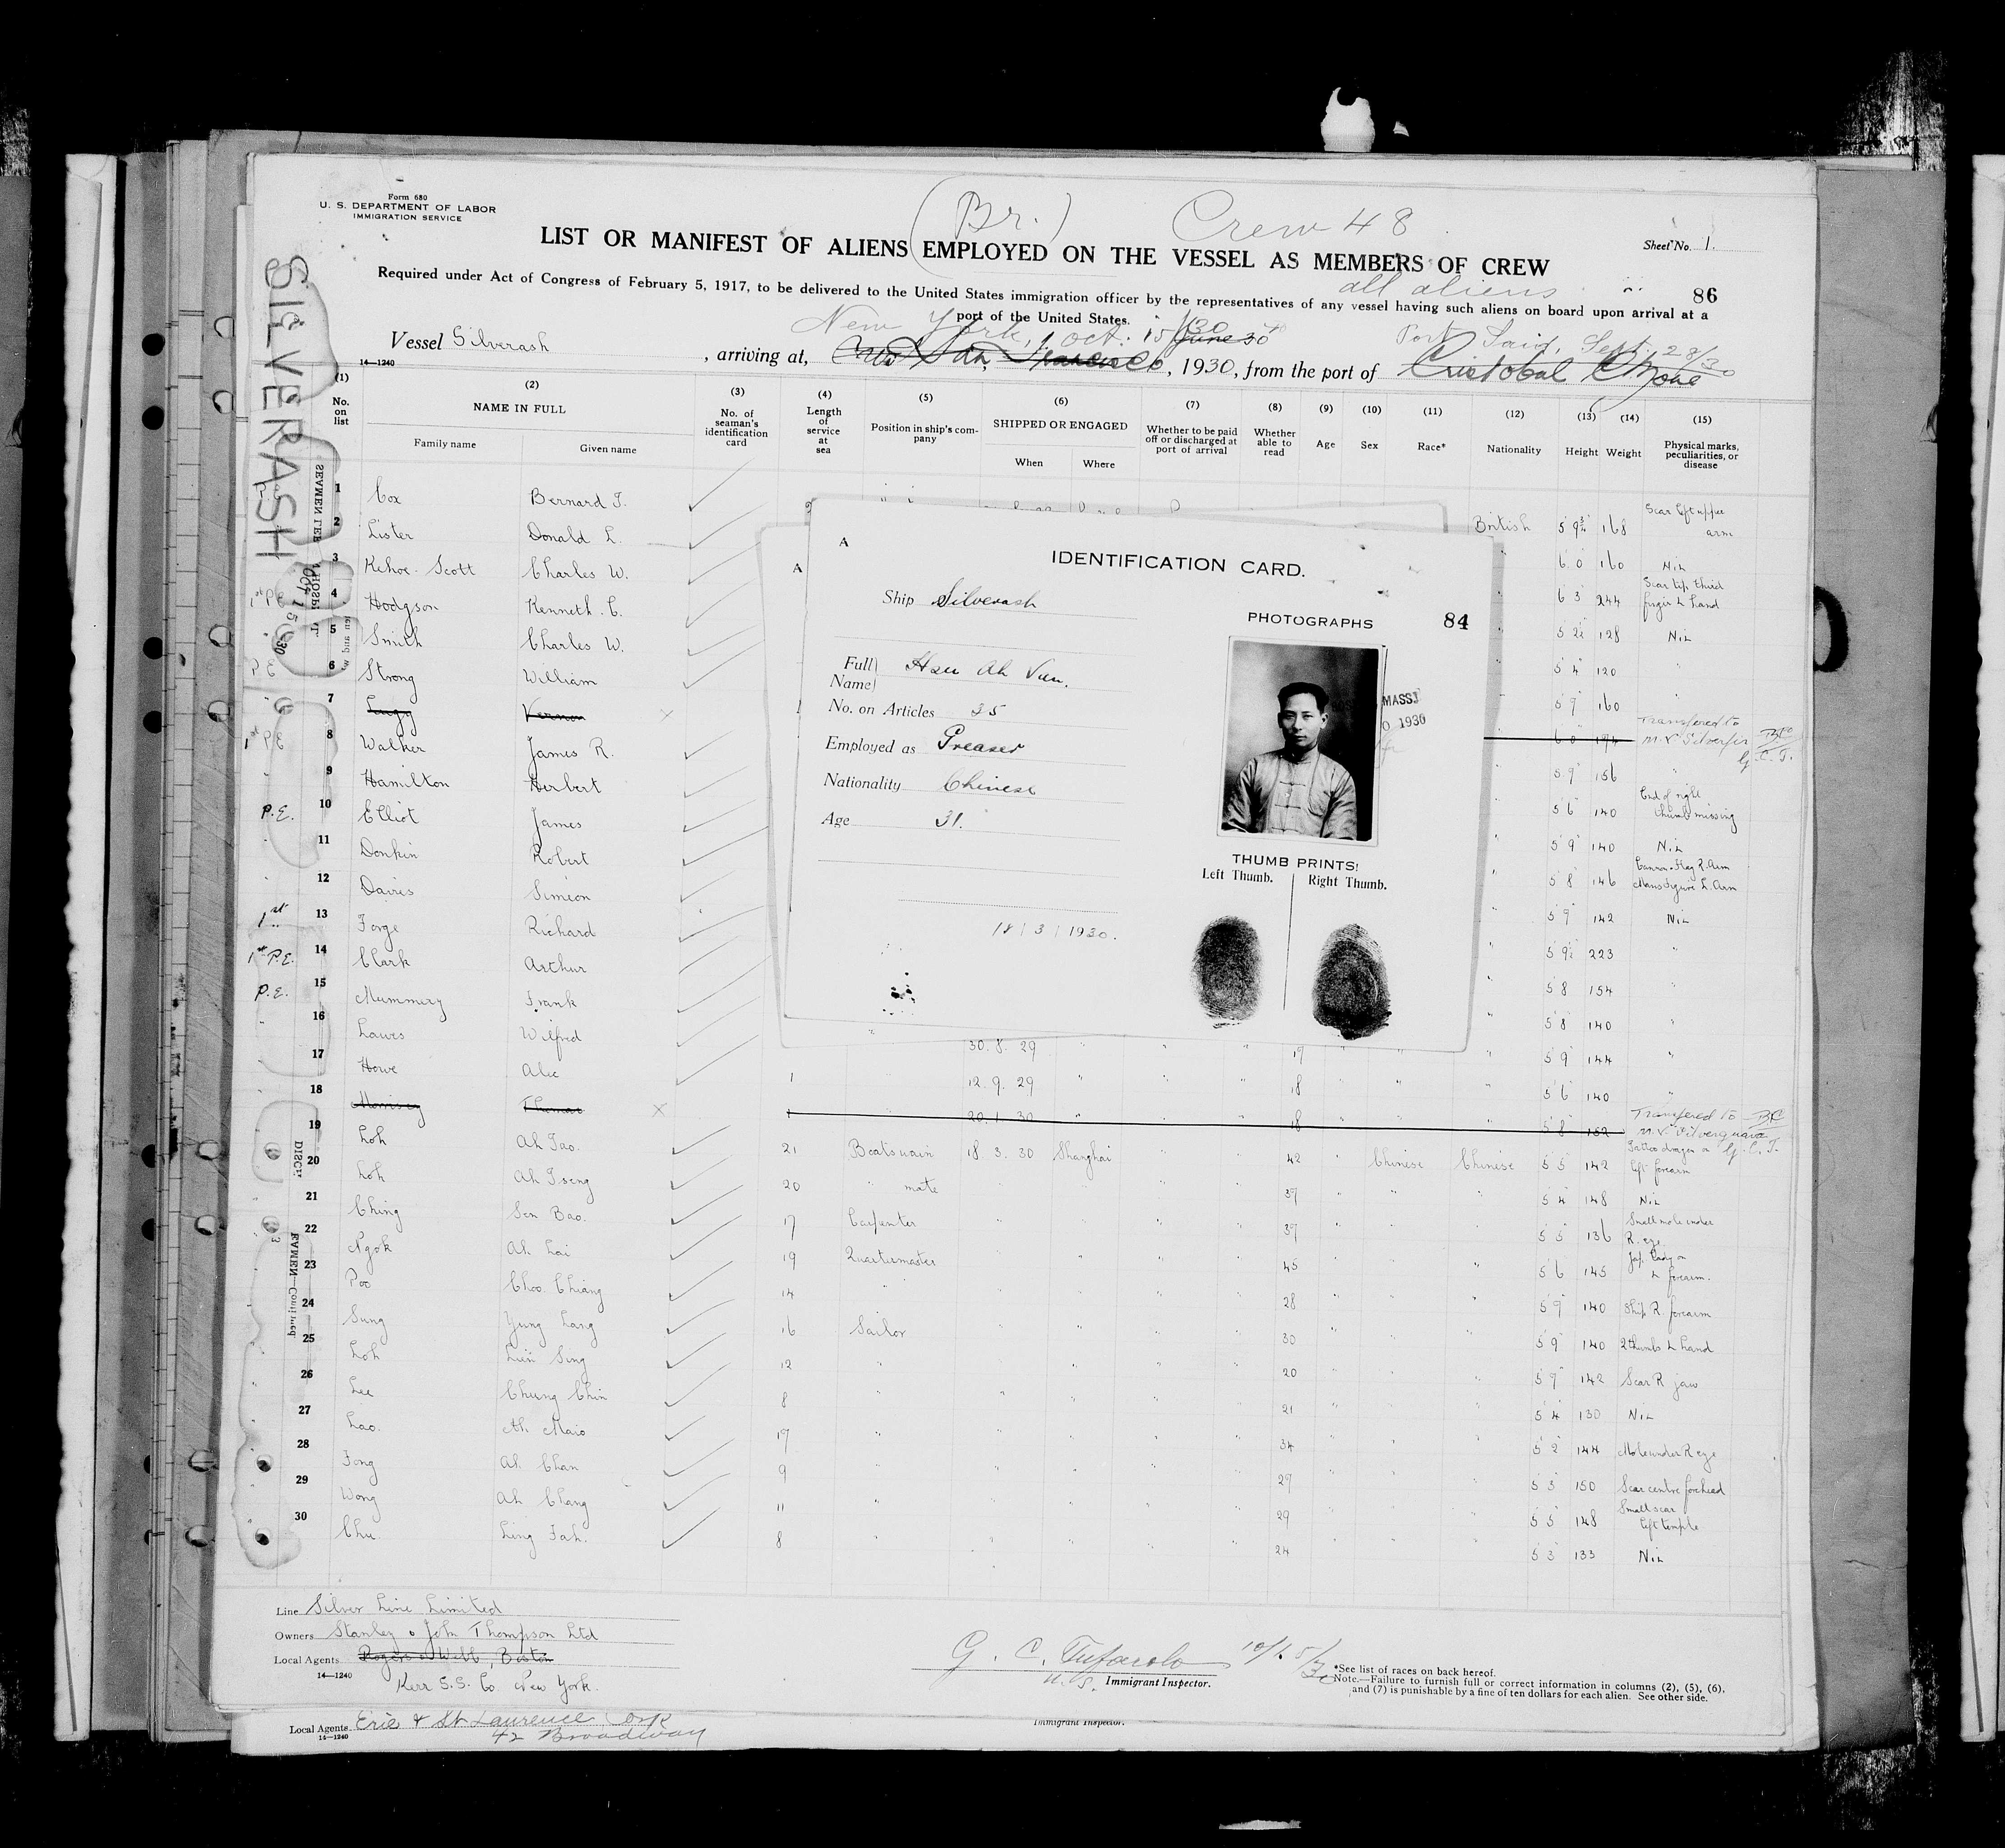 Form 680
U. S. DEPARTMENT OF LABOR
IMMIGRATION SERVICE
(Br.)
Crew 48
LIST OR MANIFEST OF ALIENS EMPLOYED ON THE VESSEL AS MEMBERS OF CREW
Sheet No. 1.
all aliens
86
Required under Act of Congress of February 5, 1917, to be delivered to the United States immigration officer by the representatives of any vessel having such aliens on board upon arrival at a
port of the United States.
New York, Oct. 15/30
Port Said, Sept. 28/30
Vessel Silverash, arriving at, San Francisco, June 30, 1930, from the port of Cristobal C Zone
14—1240
SILVERASH
(1) No. on list
(2) NAME IN FULL
Family name Given name
(3) No. of seaman's identification card
(4) Length of service at sea
(5) Position in ship's company
(6) SHIPPED OR ENGAGED
When Where
(7) Whether to be paid off or discharged at port of arrival
(8) Whether able to read
(9) Age
(10) Sex
(11) Race*
(12) Nationality
(13) Height
(14) Weight
(15) Physical marks, peculiarities, or disease
1 Cox Bernard J. British 5 9¾ 168 Scar left upper arm
2 Lister Donald L. " 6 0 160 Nil
3 Kehoe-Scott Charles W. " 6 3 244 Scar tip third finger L hand
4 Hodgson Kenneth. C. " 5 2½ 128 Nil
5 Smith Charles W. " 5 4 120 "
6 Strong William " 5 7 160 "
7 Vernon 6 0 194 Transfered to M.V. Silverfir
8 Walker James R. " 5 9 156 "
9 Hamilton Herbert " 5 6 140 End of right thumb missing
10 Elliot James " 5 9 140 Nil
11 Donkin Robert " 5 8 146
12 Davies Simeon " 5 9 142 Nil
13 Forge Richard " 5 9½ 223 "
14 Clark Arthur " 5 8 154 "
15 Mummery Frank " 5 8 140 "
16 Lawes Wilfred 30. 8. 29 " " " 19 " " " 5 9 144 "
17 Howe Alec 1 12. 9. 29 " " " 18 " " " 5 6 140 "
18 Morrisey Thomas 1 20. 1. 30 " " " 18 " " " 5 8 152 Transfered to M.V. Silverguava
19 Loh Ah Tao. 21 Boatswain 18. 3. 30 Shanghai " " 42 " Chinese Chinese 5 5 142 Tattoo dragon on left forearm
20 Loh Ah Tseng 20 " mate " " " " 37 " " " 5 4 148 Nil
21 Ching Sen Bao. 17 Carpenter " " " " 37 " " " 5 5 136 Small mole under R. eye
22 Ngok Ah Lai 19 Quartermaster " " " " 45 " " " 5 6 145 Jap. Lady on L forearm.
23 Poo Choo Chiang 14 " " " " " 28 " " " 5 7 140 Ship R. forearm
24 Sung Yung Lang 16 Sailor " " " " 30 " " " 5 9 140 2 thumbs L hand
25 Loh Lien Sing 12 " " " " " 20 " " " 5 7 142 Scar R jaw
26 Lee Chung Chin 8 " " " " " 21 " " " 5 4 130 Nil
27 Lao. Ah Maio 17 " " " " " 34 " " " 5 2 144 Mole under R eye
28 Fong Ah Chan 9 " " " " " 27 " " " 5 3 150 Scar centre forehead
29 Wong Ah Chang 11 " " " " " 29 " " " 5 5 148 Small scar left temple
30 Chu. Ling Fah. 8 " " " " " 24 " " " 5 3 133 Nil
A
A
IDENTIFICATION CARD.
Ship Silverash
PHOTOGRAPHS
84
Full Name Hsu Ah Vun.
No. on Articles 35
Employed as Greaser
Nationality Chinese
Age 31.
MASS.
1930
THUMB PRINTS:
Left Thumb. Right Thumb.
18 / 3 / 1930.
Line Silver Line Limited
Owners Stanley & John Thompson Ltd
Local Agents Rogers & Webb, Boston
14—1240
Kerr S.S. Co. New York.
G. C. Tufarolo 10/15/30
U. S. Immigrant Inspector.
*See list of races on back hereof.
Note.—Failure to furnish full or correct information in columns (2), (5), (6),
and (7) is punishable by a fine of ten dollars for each alien. See other side.
Local Agents Erie & St Laurence Corp
14—1240
42 Broadway
Immigrant Inspector.